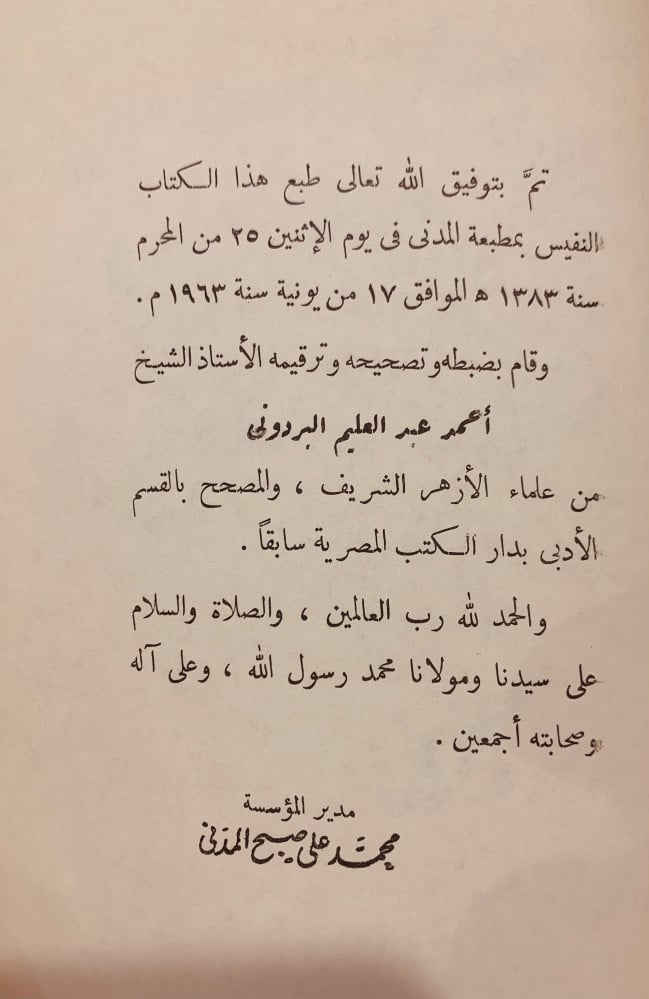 تمَّ بتوفيق الله تعالى طبع هذا الكتاب
النفيس بمطبعة المدنى فى يوم الإثنين ٢٥ من المحرم
سنة ١٣٨٣ ه الموافق ١٧ من يونية سنة ١٩٦٣ م .
وقام بضبطه وتصحيحه وترقيمه الأستاذ الشيخ
أحمد عبد العليم البردونى
من علماء الأزهر الشريف ، والمصحح بالقسم
الأدبى بدار الكتب المصرية سابقاً .
والحمد لله رب العالمين ، والصلاة والسلام
على سيدنا ومولانا محمد رسول الله ، وعلى آله
وصحابته أجمعين .
مدير المؤسسة
محمد على صبح المدنى